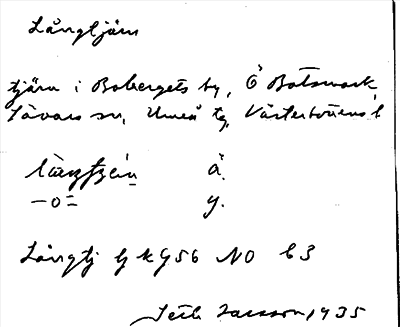 Långtjärn
tjärn i Bobergets by, Ö Botsmark,
Sävars sn, Umeå tg, Västerbottens l
å.
—o— y.
Långtj gkg56 NO b3
Seth Larsson 1935